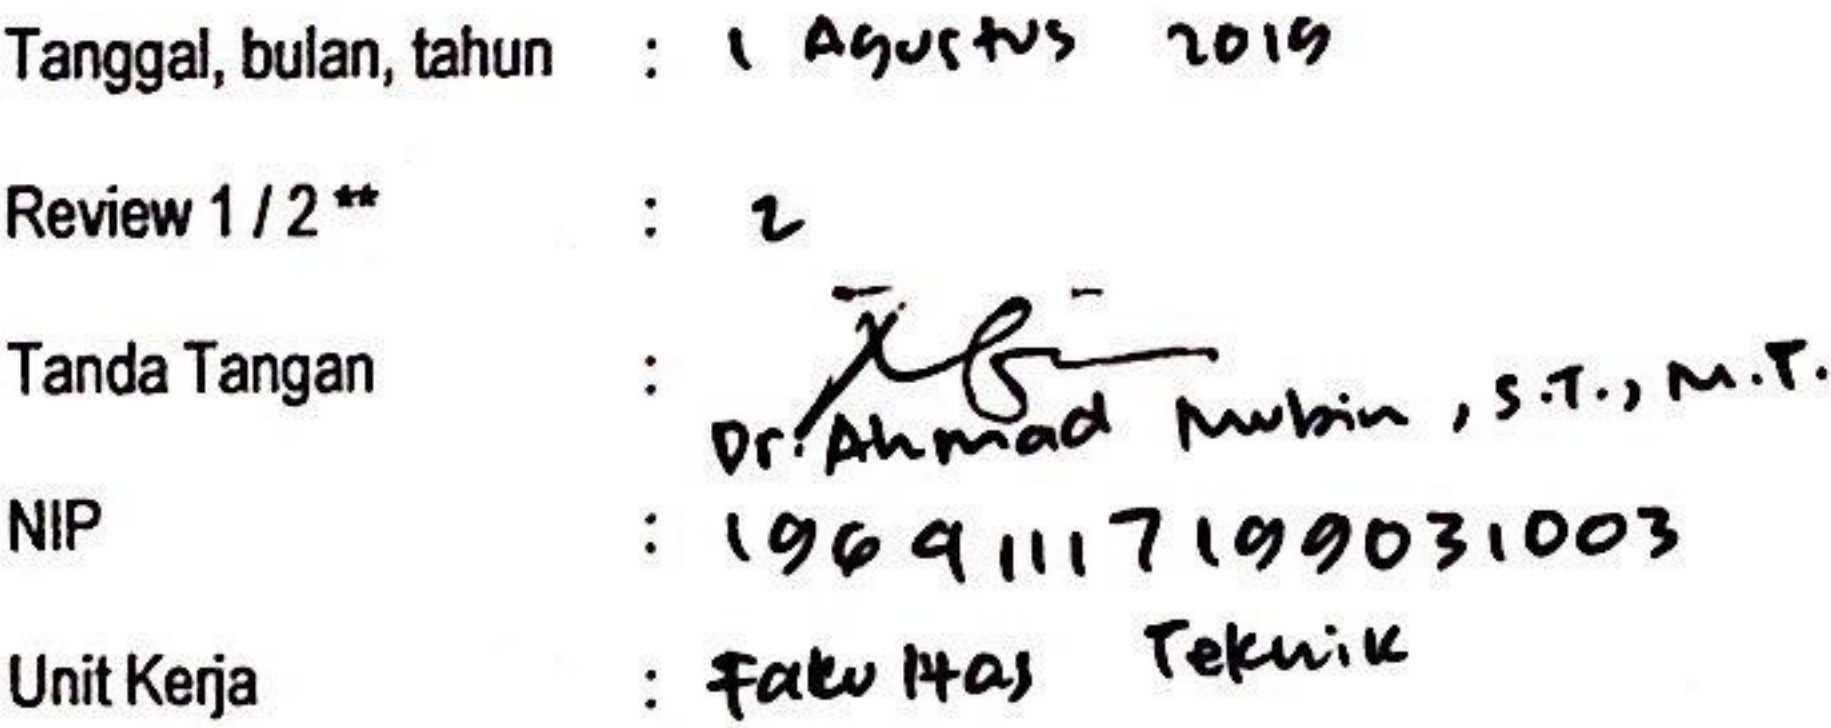 Tanggal, bulan, tahun : 1 Agustus 2019
Review 1 / 2 ** : 2
Tanda Tangan :
Dr. Ahmad Mubin, S.T., M.T.
NIP : 19691117199031003
Unit Kerja : Fakultas Teknik